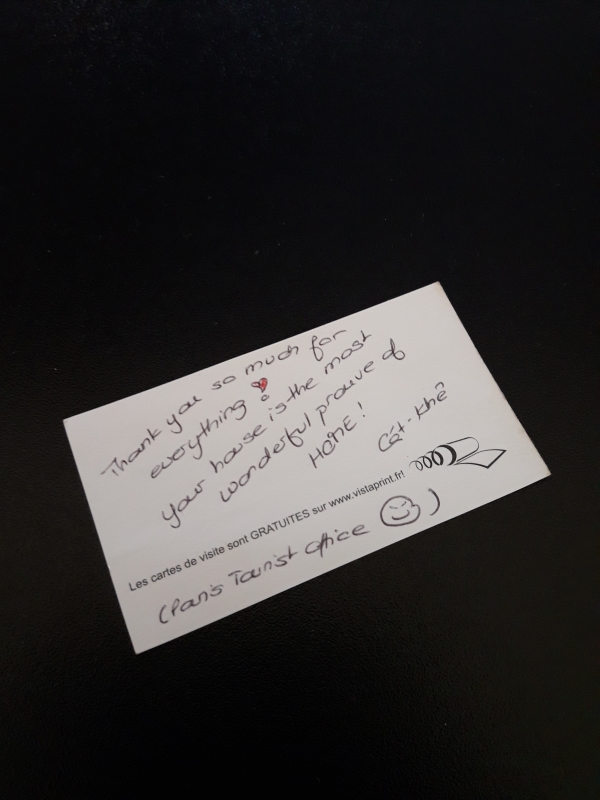 Thank you so much for
everything !
your house is the most
wonderful prouve of
HOME!
Cát-Khê
Les cartes de visite sont GRATUITES sur www.vistaprint.fr!
(Paris Tourist office )